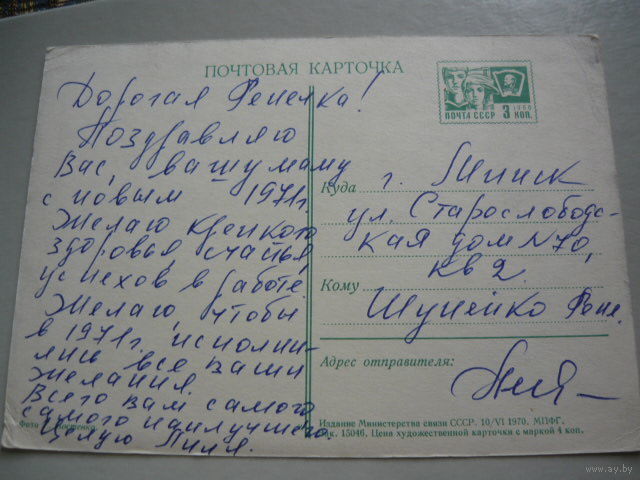 ПОЧТОВАЯ КАРТОЧКА
ПОЧТА СССР 3 КОП.
1966
Дорогая Фенечка!
Поздравляю
Вас, вашу маму
с новым 1971г.
Желаю крепкого
здоровья, счастья,
успехов в работе.
Желаю, чтобы
в 1971г. исполни-
лись все ваши
желания.
Всего вам самого
самого наилучшего
Целую Лиля.
Куда г. Минск
ул. Старослободс-
кая дом N70,
кв 2.
Кому Шунейко Фене.
Адрес отправителя:
Фото
Издание Министерства связи СССР. 10/VI 1970. МПФГ.
Зак. 15046. Цена художественной карточки с маркой 4 коп.
www.ay.by